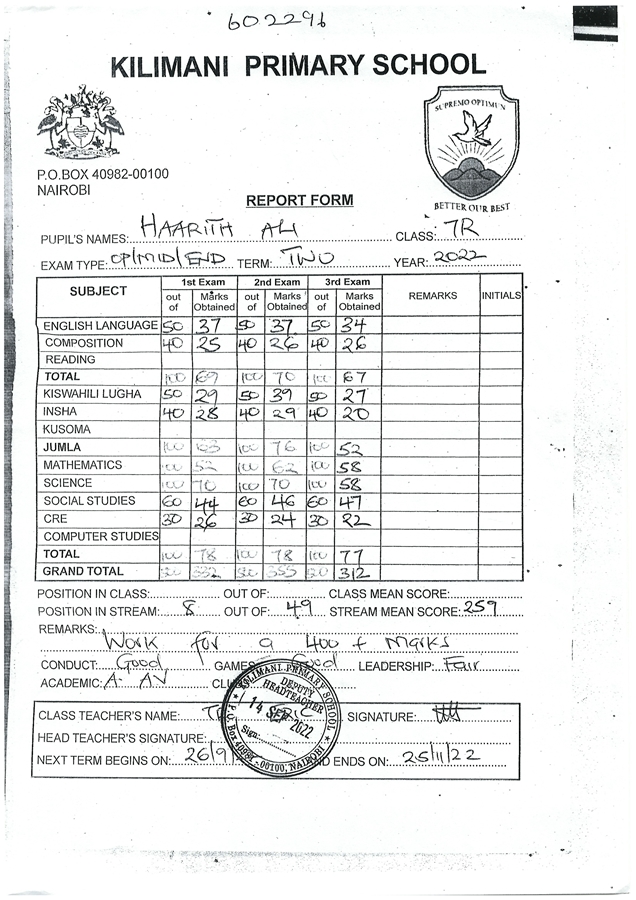 602296
KILIMANI PRIMARY SCHOOL
SUPREMO OPTIMUN
P.O.BOX 40982-00100
NAIROBI
BETTER OUR BEST
REPORT FORM
PUPIL'S NAMES: HAARITH ALI CLASS: 7R
EXAM TYPE: OP/MID/END TERM: TWO YEAR: 2022
SUBJECT 1st Exam 2nd Exam 3rd Exam REMARKS INITIALS
out of Marks Obtained out of Marks Obtained out of Marks Obtained
ENGLISH LANGUAGE 50 37 50 37 50 34
COMPOSITION 40 25 40 26 40 26
READING
TOTAL 100 69 100 70 100 67
KISWAHILI LUGHA 50 29 50 39 50 27
INSHA 40 28 40 29 40 20
KUSOMA
JUMLA 100 63 100 76 100 52
MATHEMATICS 100 52 100 62 100 58
SCIENCE 100 70 100 70 100 58
SOCIAL STUDIES 60 44 60 46 60 47
CRE 30 26 30 24 30 22
COMPUTER STUDIES
TOTAL 100 78 100 78 100 77
GRAND TOTAL 500 332 500 355 500 312
POSITION IN CLASS: OUT OF: CLASS MEAN SCORE:
POSITION IN STREAM: 8 OUT OF: 49 STREAM MEAN SCORE: 259
REMARKS:
Work for a 400 + Marks
CONDUCT: Good GAMES Good LEADERSHIP: Fair
ACADEMIC: A. AV
KILIMANI PRIMARY SCHOOL
DEPUTY
HEADTEACHER
14 SEP 2022
Sign:
P. O. Box 40982-00100, NAIROBI
CLASS TEACHER'S NAME: SIGNATURE:
HEAD TEACHER'S SIGNATURE:
NEXT TERM BEGINS ON: 26/9 ENDS ON: 25/11/22